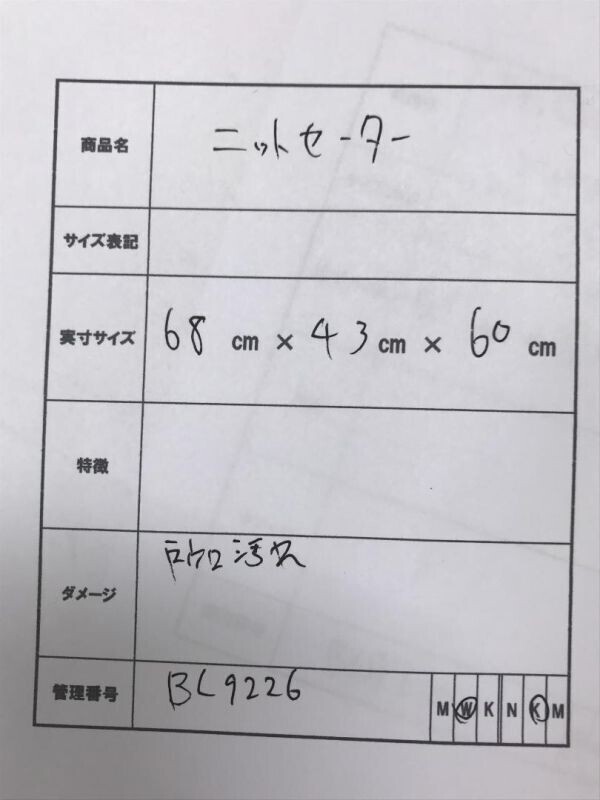 商品名 ニットセーター
サイズ表記
実寸サイズ 68 cm × 43 cm × 60 cm
特徴
ダメージ 汚れ
管理番号 BC9226 M W K N K M